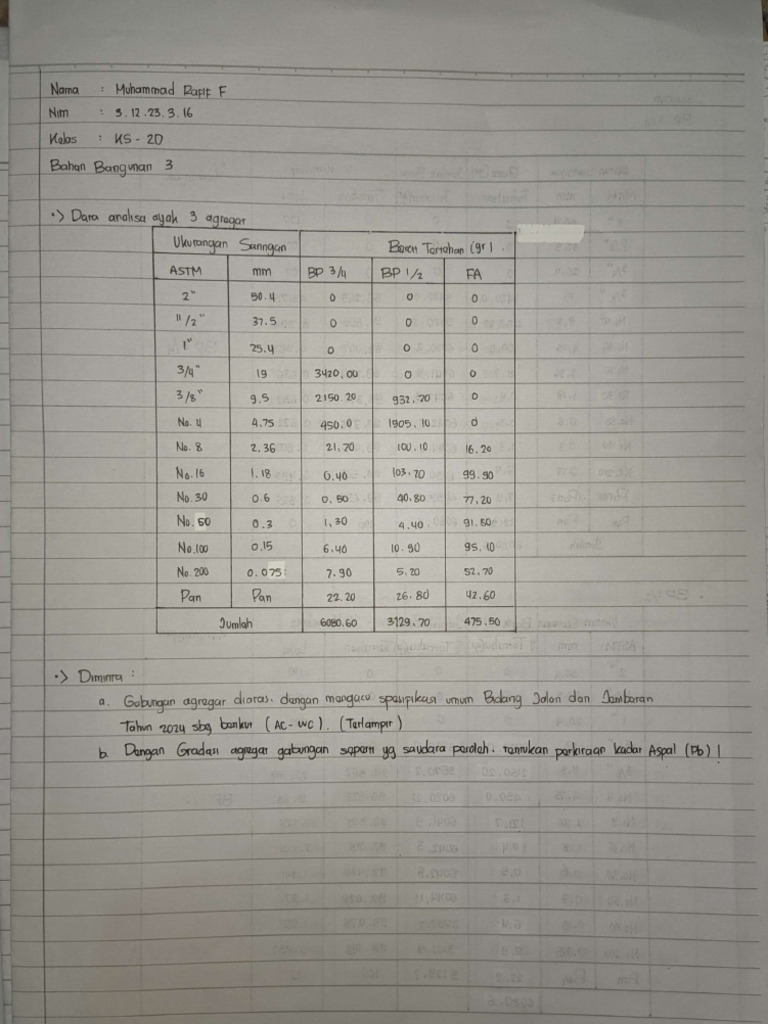 Nama : Muhammad Rafif F
Nim : 3.12.23.3.16
Kelas : KS - 2D
Bahan Bangunan 3
•> Data analisa ayak 3 agregat
Ukurangan Saringan Berat Tertahan (gr).
ASTM mm BP 3/4 BP 1/2 FA
2" 50.4 0 0 0
1 1/2" 37.5 0 0 0
1" 25.4 0 0 0
3/4" 19 3420.00 0 0
3/8" 9.5 2150.20 932.70 0
No. 4 4.75 450.0 1905.10 0
No. 8 2.36 21.70 100.10 16.20
No. 16 1.18 0.40 103.70 99.90
No. 30 0.6 0.50 40.80 77.20
No. 50 0.3 1,30 4.40 91.80
No. 100 0.15 6.40 10.90 95.10
No. 200 0.075 7.90 5.20 52.70
Pan Pan 22.20 26.80 42.60
Jumlah 6080.60 3129.70 475.50
•> Diminta :
a. Gabungan agregat diatas. dengan mengacu spesipikasi umum Bidang Jalan dan Jembatan
Tahun 2024 sbg berikut (AC-WC). (Terlampir)
b. Dengan Gradasi agregat gabungan seperti yg saudara peroleh. tentukan perkiraan kadar Aspal (Pb) !